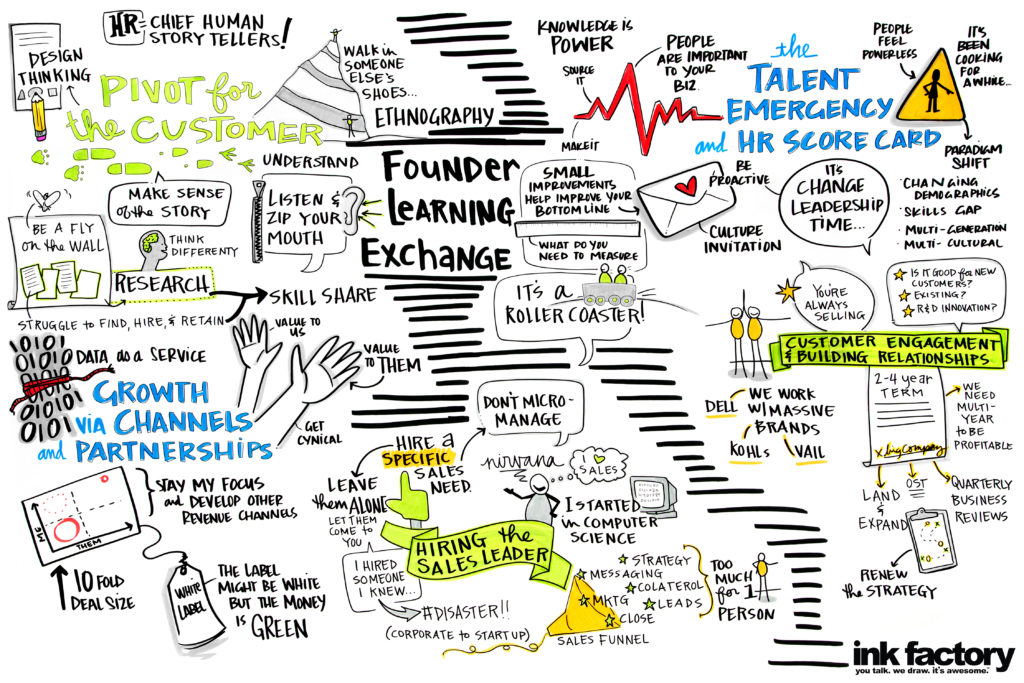 HR = CHIEF HUMAN
STORY TELLERS!
DESIGN
THINKING
PIVOT for
the CUSTOMER
WALK in
SOMEONE
ELSE'S
SHOES...
ETHNOGRAPHY
UNDERSTAND
MAKE SENSE
of the STORY
LISTEN &
ZIP YOUR
MOUTH
BE A FLY
ON the WALL
THINK
DIFFERENTY
RESEARCH
SKILL SHARE
STRUGGLE to FIND, HIRE, & RETAIN
FOUNDER
LEARNING
EXCHANGE
KNOWLEDGE IS
POWER
SOURCE
IT
MAKE IT
PEOPLE
ARE IMPORTANT
TO YOUR
BIZ.
the
TALENT
EMERGENCY
and HR SCORE CARD
PEOPLE
FEEL
POWERLESS
IT'S
BEEN
COOKING
FOR
AWHILE...
PARADIGM
SHIFT
SMALL
IMPROVEMENTS
HELP IMPROVE YOUR
BOTTOM LINE
WHAT DO YOU
NEED TO MEASURE
BE
PROACTIVE
CULTURE
INVITATION
IT'S
CHANGE
LEADERSHIP
TIME...
· CHANGING
DEMOGRAPHICS
· SKILLS GAP
· MULTI-GENERATION
· MULTI-CULTURAL
IT'S A
ROLLER COASTER!
YOU'RE
ALWAYS
SELLING
IS IT GOOD for NEW
CUSTOMERS?
EXISTING?
R&D INNOVATION?
CUSTOMER ENGAGEMENT
& BUILDING RELATIONSHIPS
DELL
WE WORK
W/ MASSIVE
BRANDS
KOHLS
VAIL
2-4 year
TERM
X big company
WE
NEED
MULTI-
YEAR
to BE
PROFITABLE
LAND
&
EXPAND
OST
QUARTERLY
BUSINESS
REVIEWS
RENEW
the STRATEGY
01010
01010
01010
01010
01010
DATA as a SERVICE
GROWTH
via CHANNELS
and PARTNERSHIPS
VALUE TO
US
VALUE
to THEM
GET
CYNICAL
ME
THEM
STAY MY FOCUS
and DEVELOP OTHER
REVENUE CHANNELS
10 FOLD
DEAL SIZE
WHITE
LABEL
THE LABEL
MIGHT BE WHITE
BUT the MONEY
is GREEN
DON'T MICRO-
MANAGE
HIRE a
SPECIFIC
SALES
NEED.
LEAVE
them ALONE
LET THEM
COME to
YOU
nirvana
I ♥
SALES
I STARTED
in COMPUTER
SCIENCE
HIRING the
SALES LEADER
I HIRED
SOMEONE
I KNEW...
#DISASTER!!
(CORPORATE to START UP)
STRATEGY
MESSAGING
COLATEROL
MKTG
LEADS
CLOSE
SALES FUNNEL
TOO
MUCH
for 1
PERSON
ink factory
you talk. we draw. it's awesome.